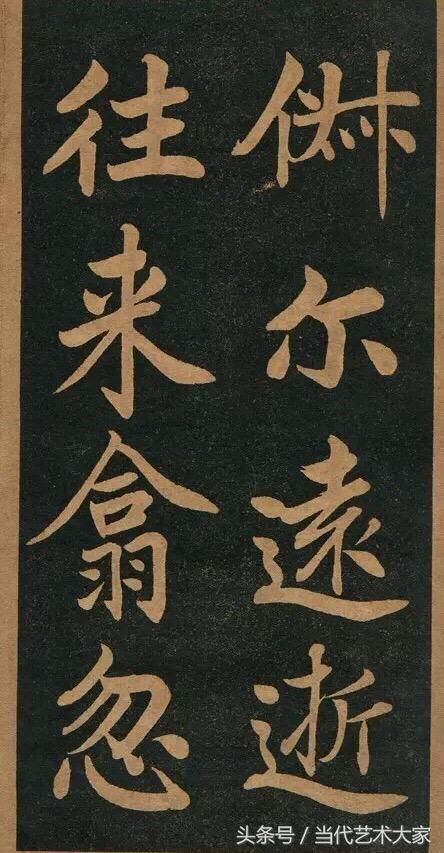 俶尔遠逝
往来翕忽
头条号 / 当代艺术大家